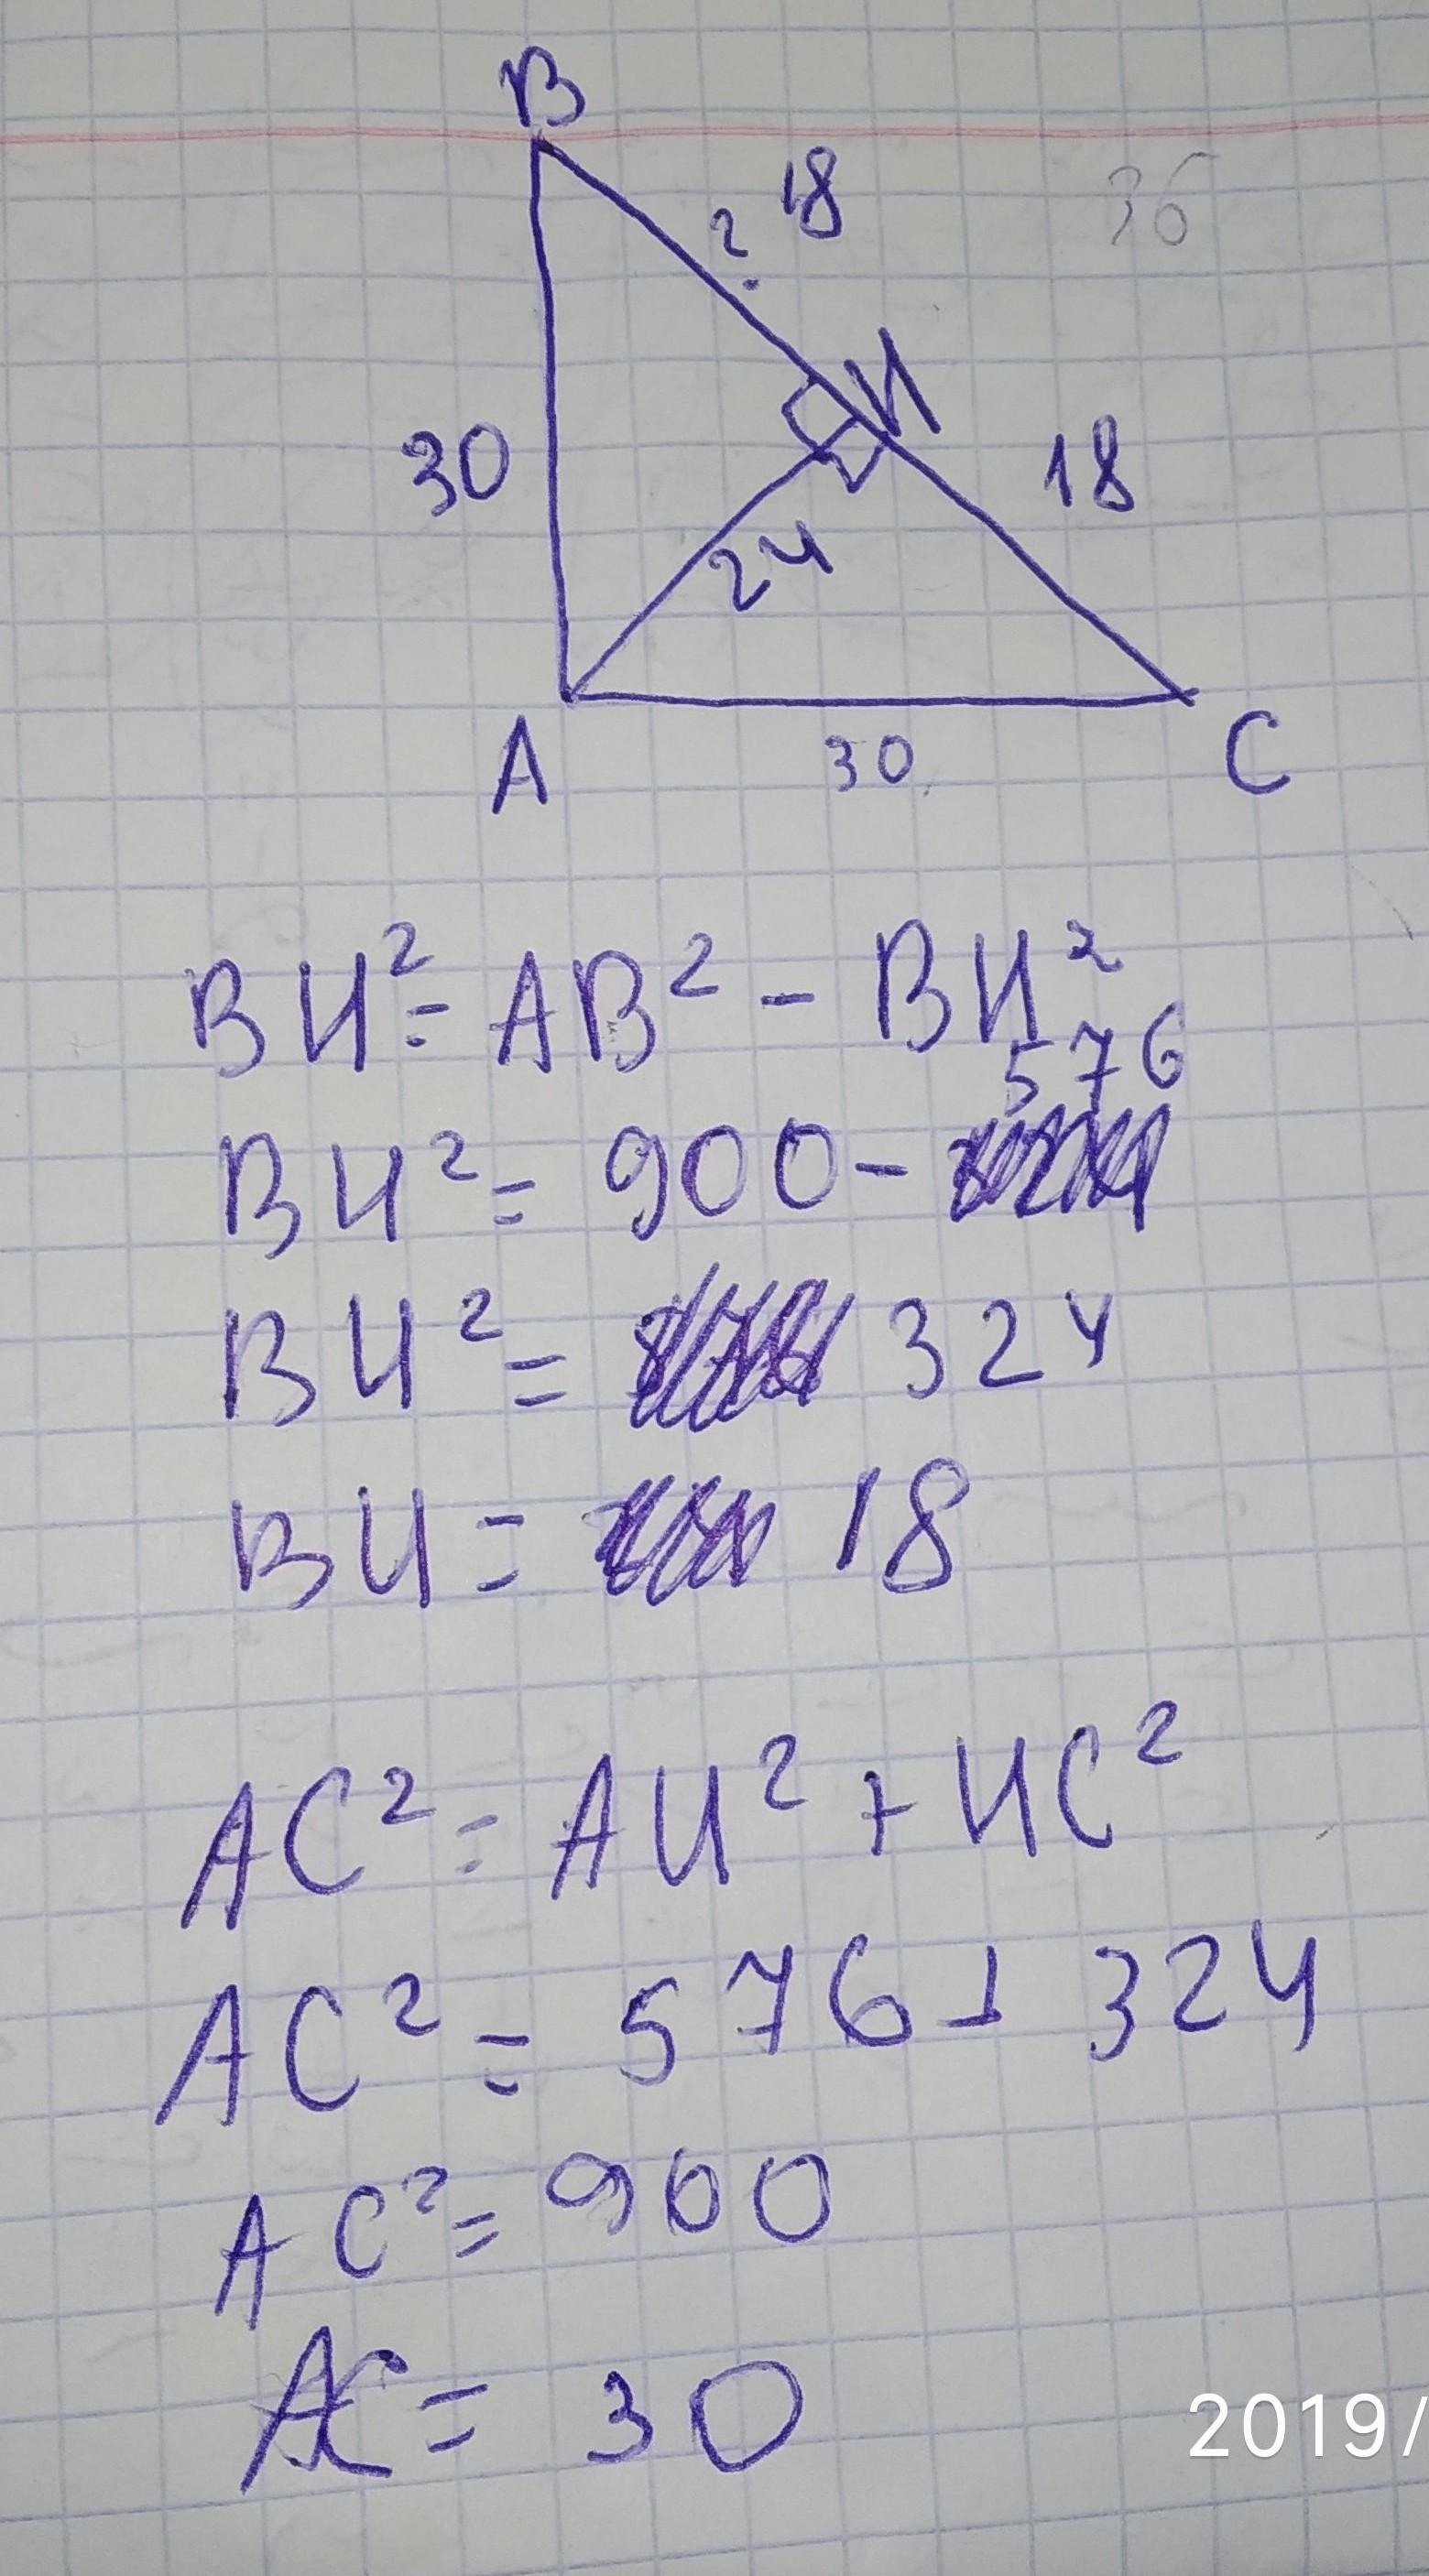 B
? 18
36
30
И
18
24
A
30
C
BИ² = AB² - BИ²
576
BИ² = 900 -
BИ² = 324
BИ = 18
AC² = AИ² + ИC²
AC² = 576 + 324
AC² = 900
AC = 30
2019/